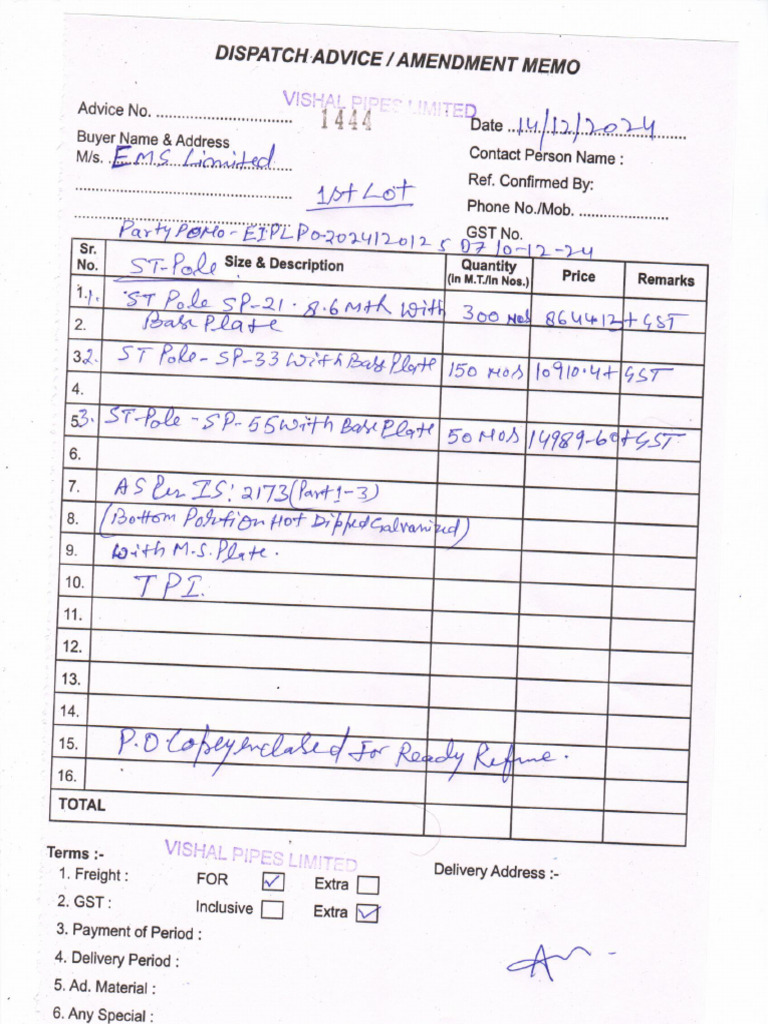 DISPATCH ADVICE / AMENDMENT MEMO
VISHAL PIPES LIMITED
Advice No. 1444
Date 14/12/2024
Buyer Name & Address
M/s. EMS Limited
Contact Person Name :
Ref. Confirmed By:
1st Lot
Phone No./Mob.
GST No.
Party PONo - EIPLPO-2024120125 DT 10-12-24
Sr. No. Size & Description Quantity (in M.T./in Nos.) Price Remarks
ST-Pole
1. 1. ST Pole SP-21 . 8.6 Mth With 300 Nos 8644.12 + GST
2. Base Plate
3. 2. ST Pole - SP-33 With Base Plate 150 Nos 10910.4 + GST
4.
5. 3. ST-Pole - SP-55 With Base Plate 50 Nos 14989-60 + GST
6.
7. AS Per IS: 2173 (Part 1-3)
8. (Bottom Portion Hot Dipped Galvanized)
9. With M.S. Plate.
10. T P I.
11.
12.
13.
14.
15. P.O Copey enclased For Ready Refrne.
16.
TOTAL
VISHAL PIPES LIMITED
Terms :-
Delivery Address :-
1. Freight : FOR ✓ Extra
2. GST : Inclusive Extra ✓
3. Payment of Period :
4. Delivery Period :
5. Ad. Material :
6. Any Special :